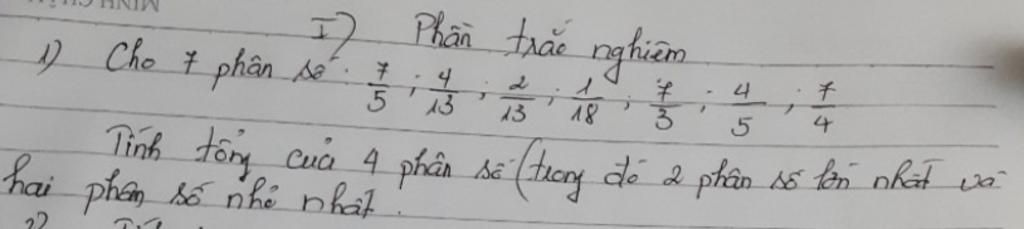 I) Phần trắc nghiệm
1) Cho 7 phân số: 7/5 ; 4/13 ; 2/13 ; 1/18 ; 7/3 ; 4/5 ; 7/4
Tính tổng của 4 phân số (trong đó 2 phân số lớn nhất và
hai phân số nhỏ nhất.
2)